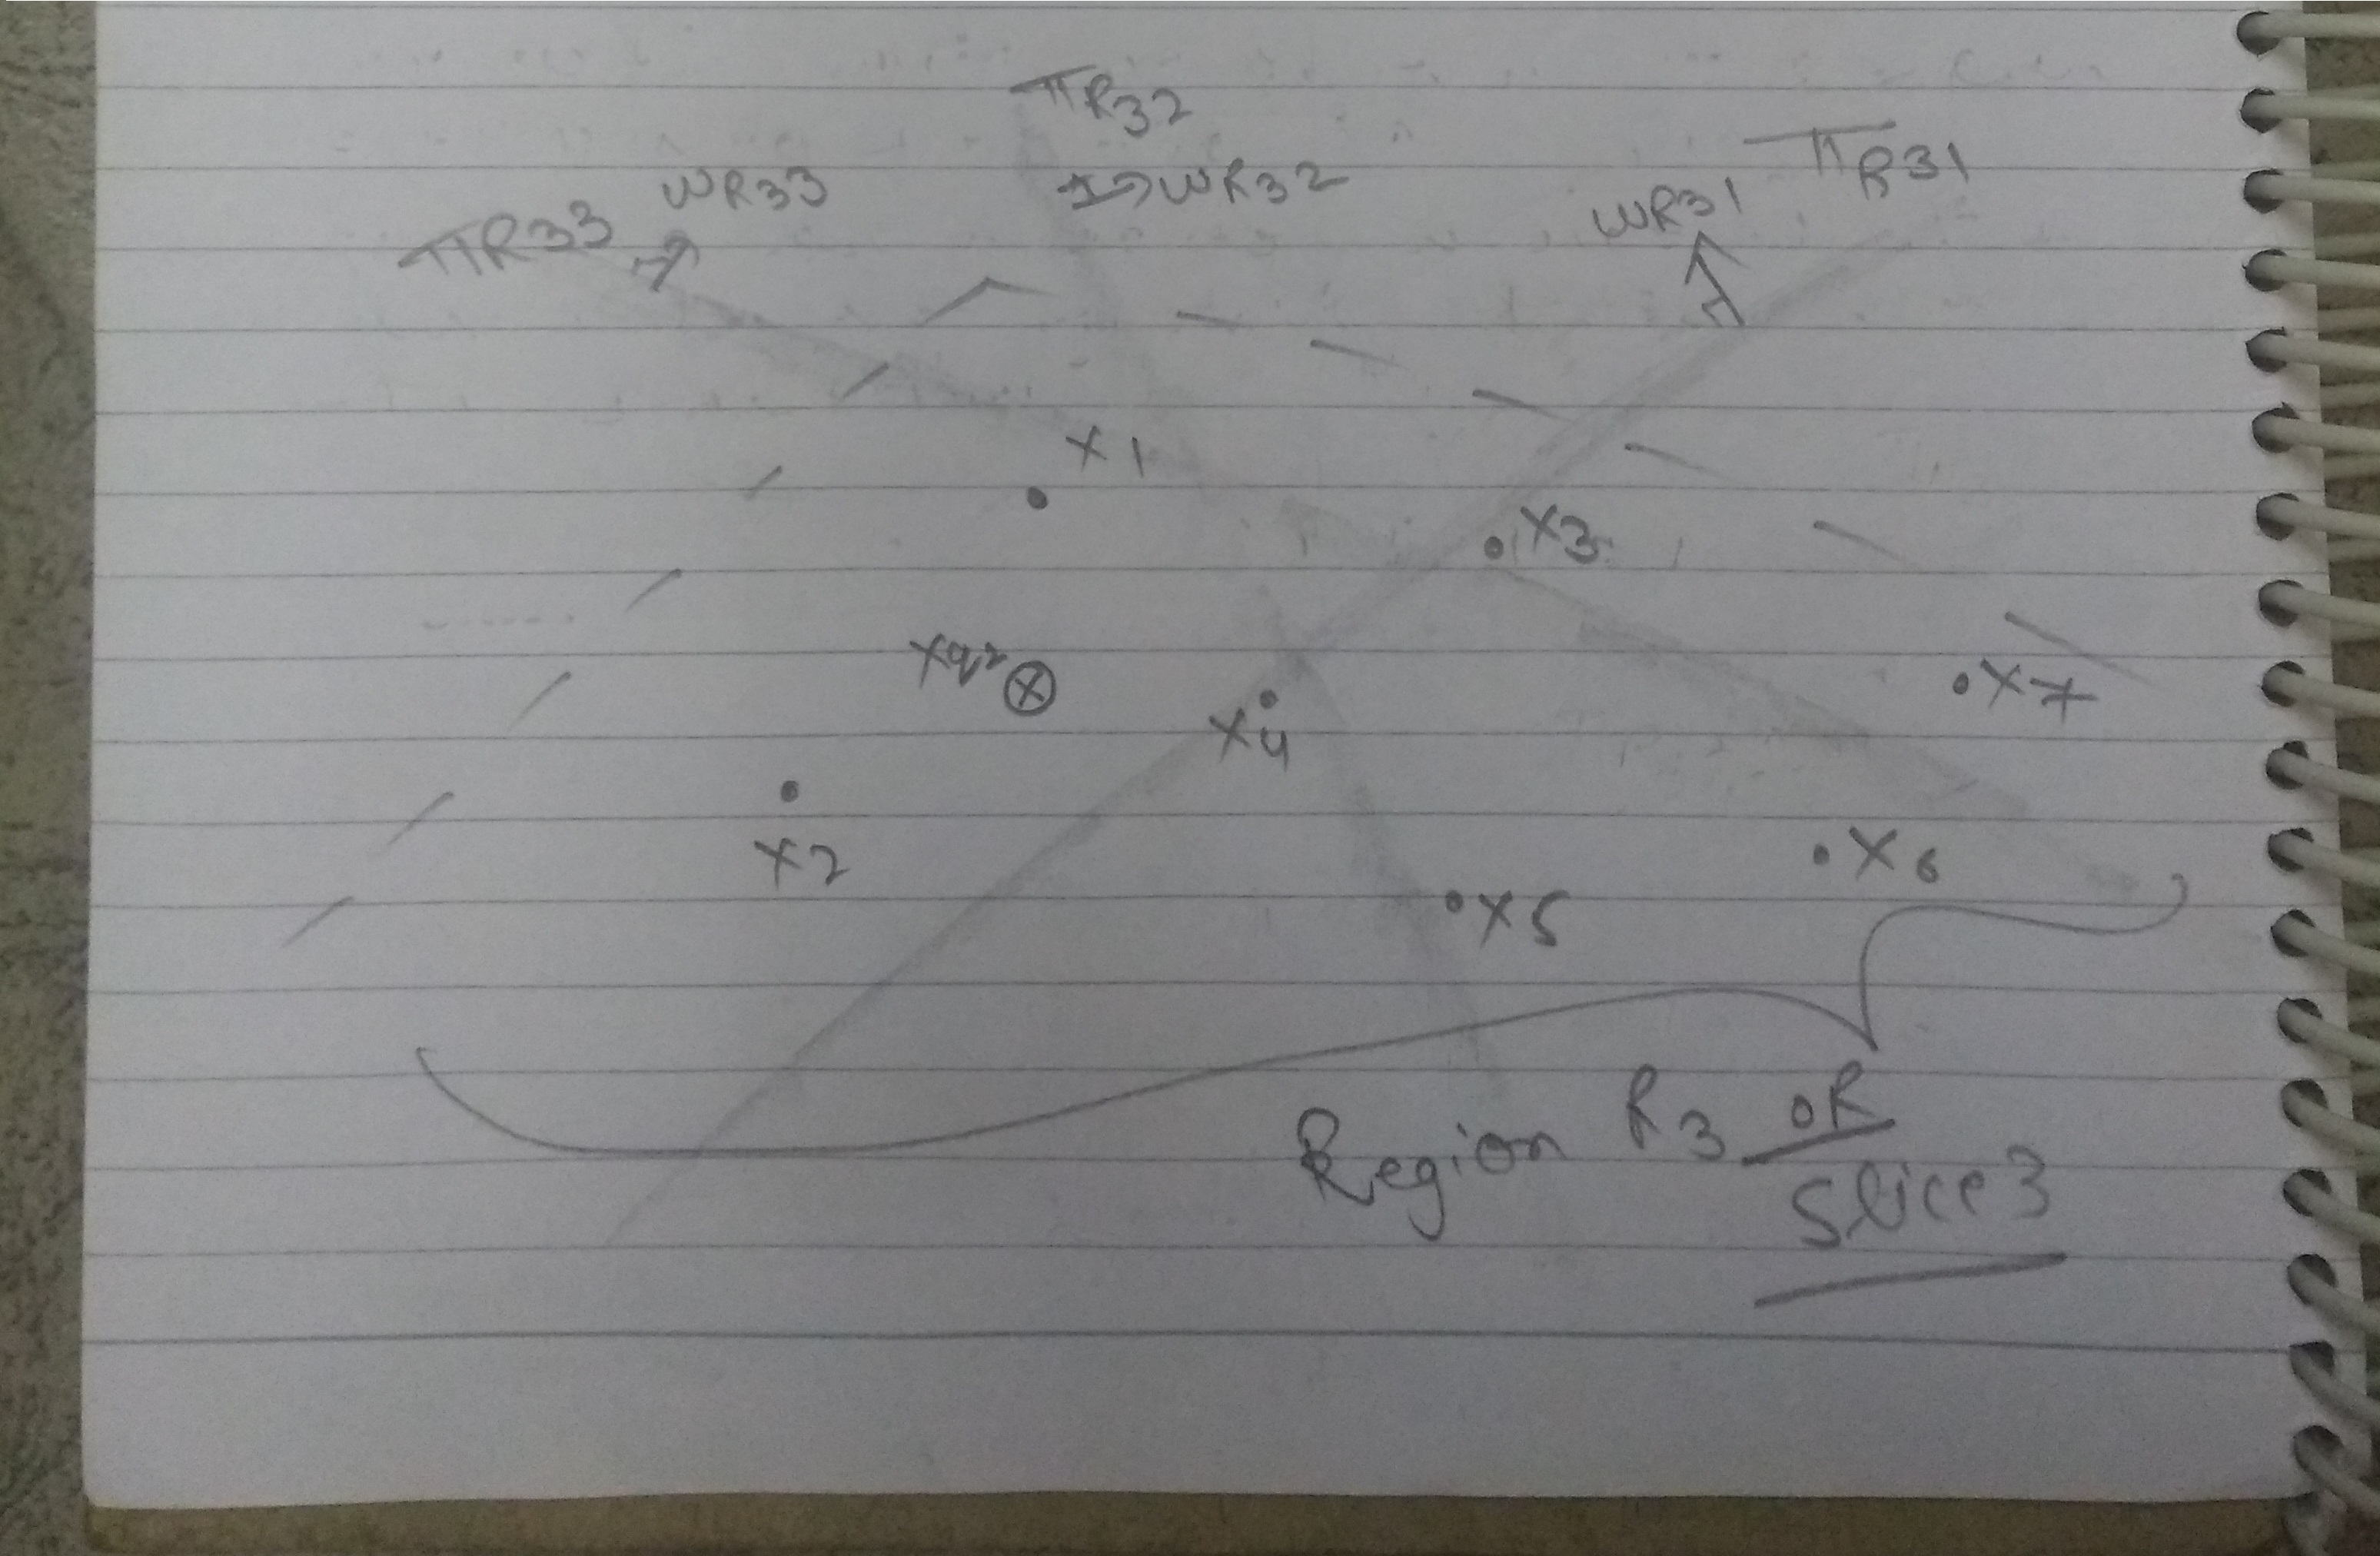 πR32
πR31
WR33
WR32
WR31
πR33
x1
x3
xq2
x7
x4
x2
x6
x5
Region R3 OR
Slice 3